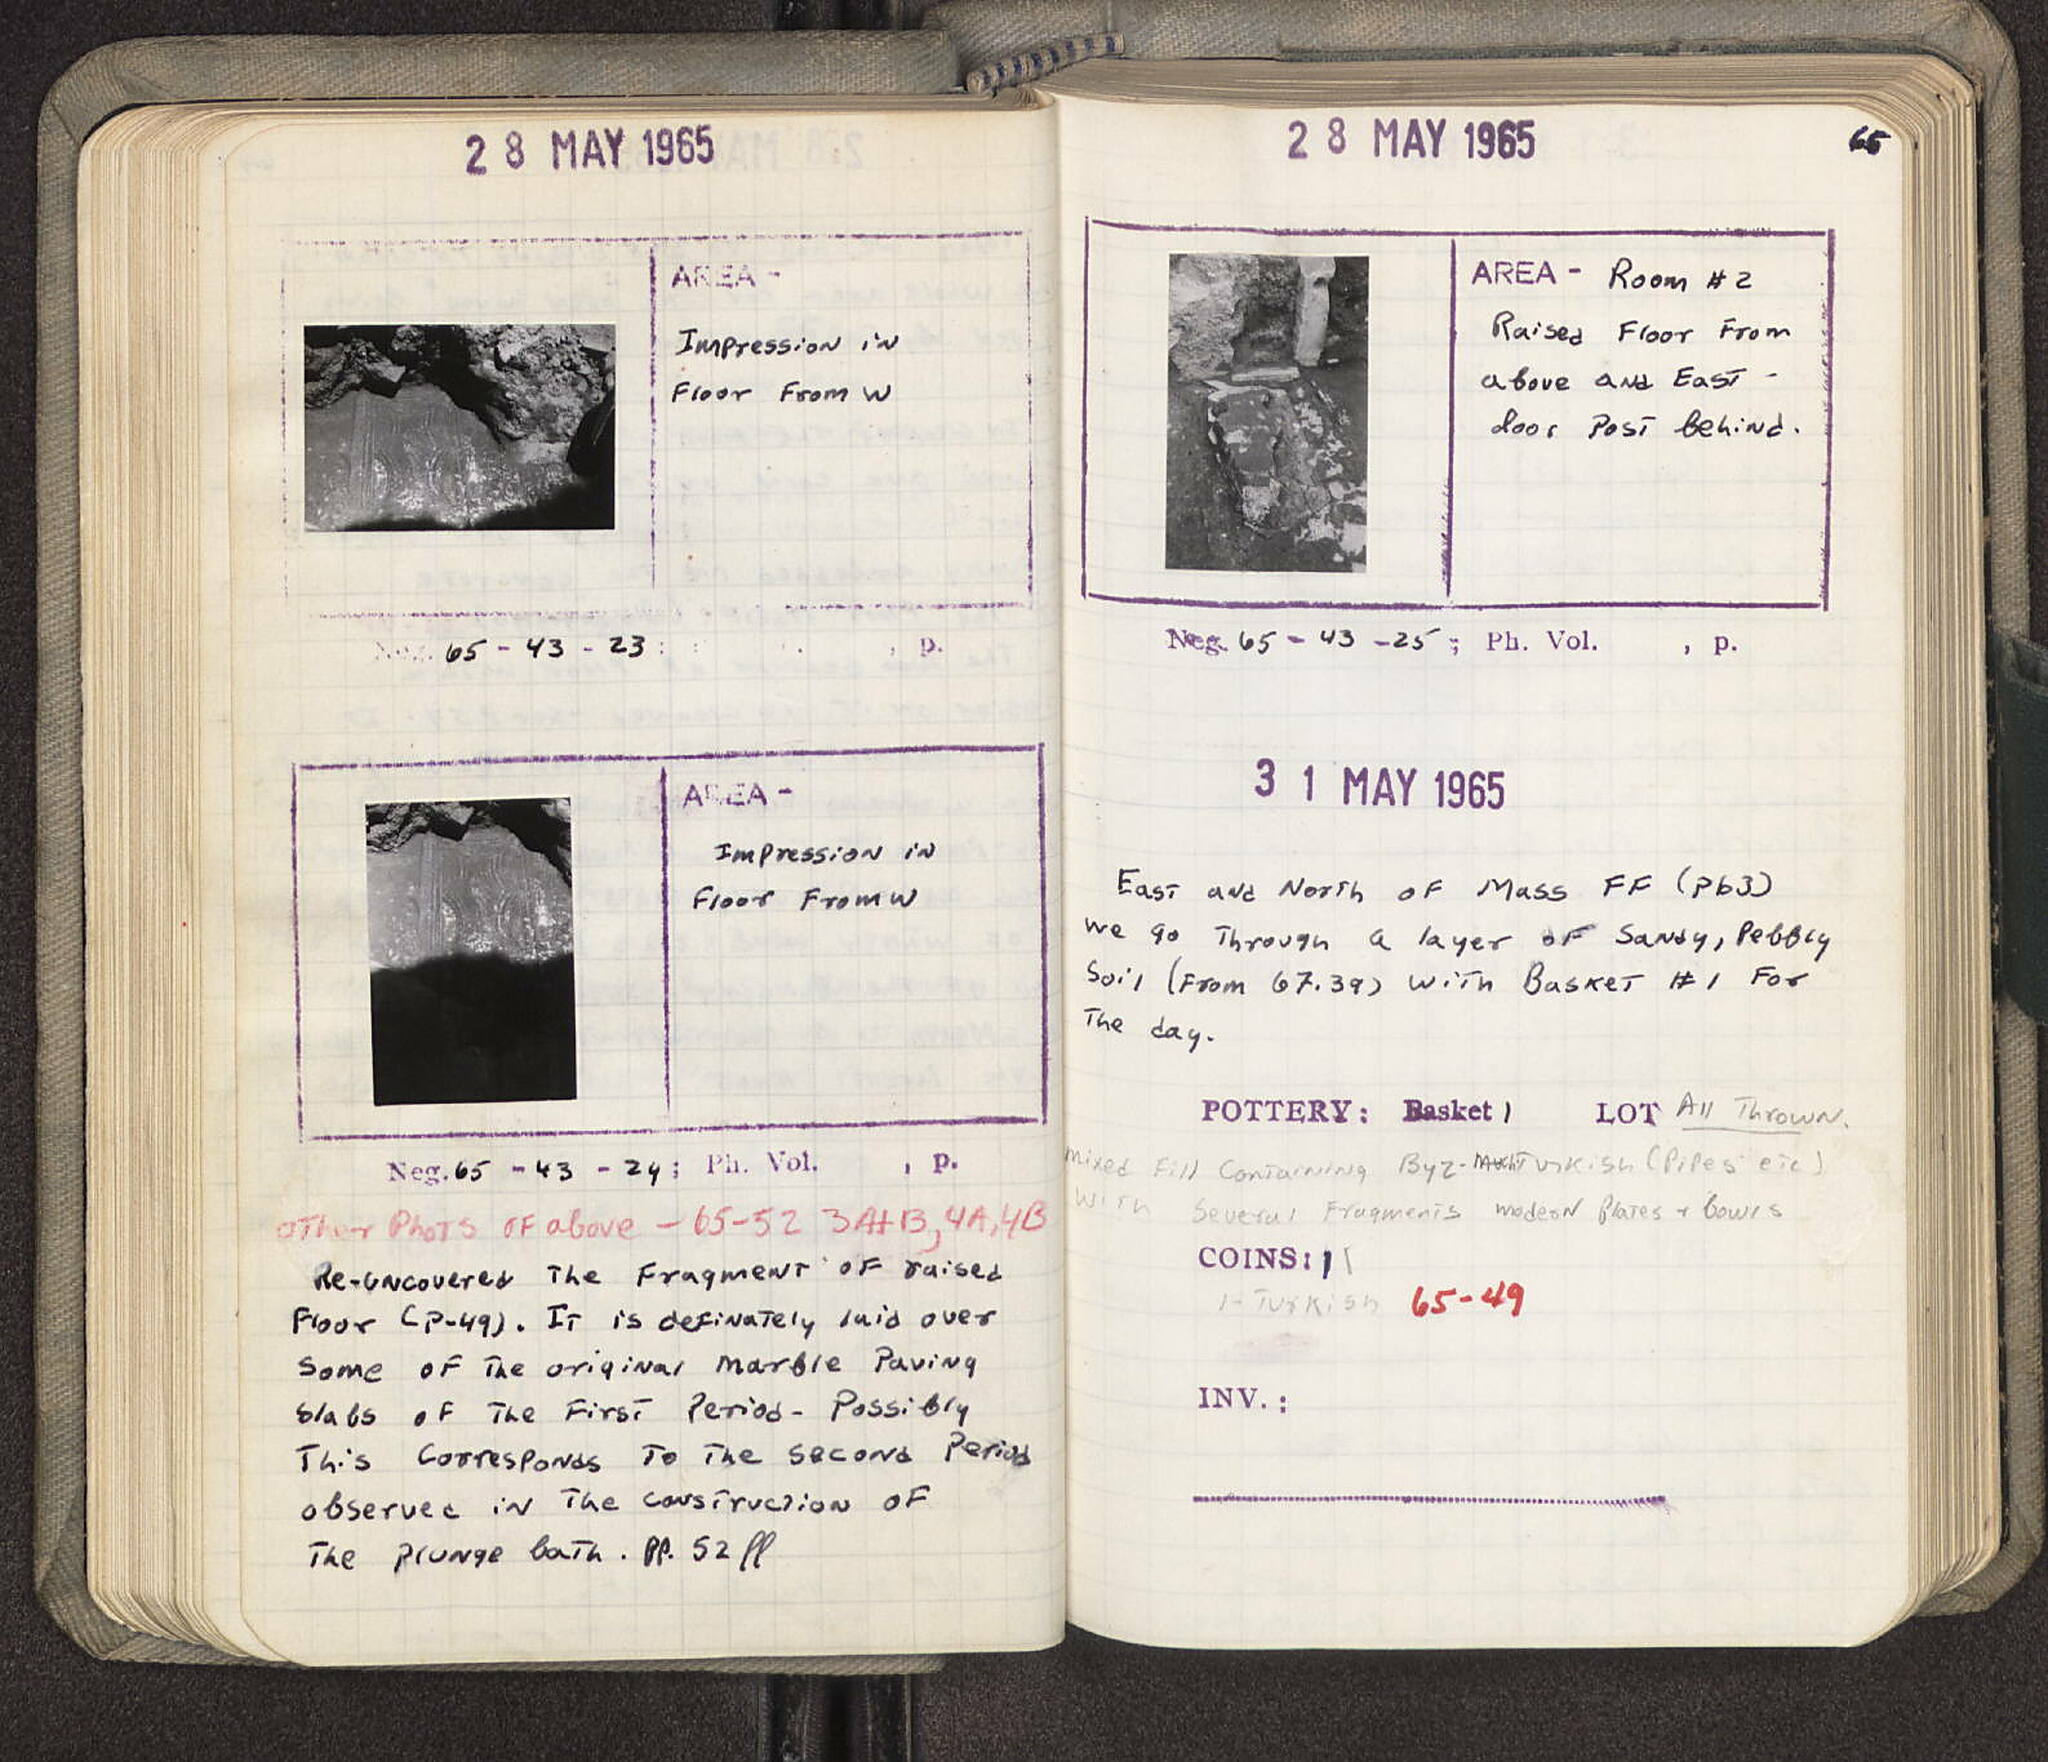 28 MAY 1965
AREA -
Impression in
Floor From W
Neg. 65 - 43 - 23 ; , p.
AREA -
Impression in
Floor From W
Neg. 65 - 43 - 24 ; Ph. Vol. , p.
other Phots of above - 65-52 3A+B, 4A, 4B
Re-uncovered The Fragment of raised
Floor (P-49). It is definately laid over
Some of The original Marble Paving
Slabs of The First Period - Possibly
This Corresponds To The second Period
observed in The construction of
The plunge bath. pp. 52 ff
28 MAY 1965
65
AREA - Room # 2
Raised Floor From
above and East -
door Post behind.
Neg. 65 - 43 - 25 ; Ph. Vol. , p.
31 MAY 1965
East and North of Mass FF (P63)
we go Through a layer of Sandy, Pebbly
Soil (From 67.39) with Basket #1 For
The day.
POTTERY: Basket 1 LOT All Thrown.
Mixed Fill Containing Byz- Turkish (Pipes etc)
With Several Fragments modern Plates + bowls
COINS: 1
1-Turkish 65-49
INV. :